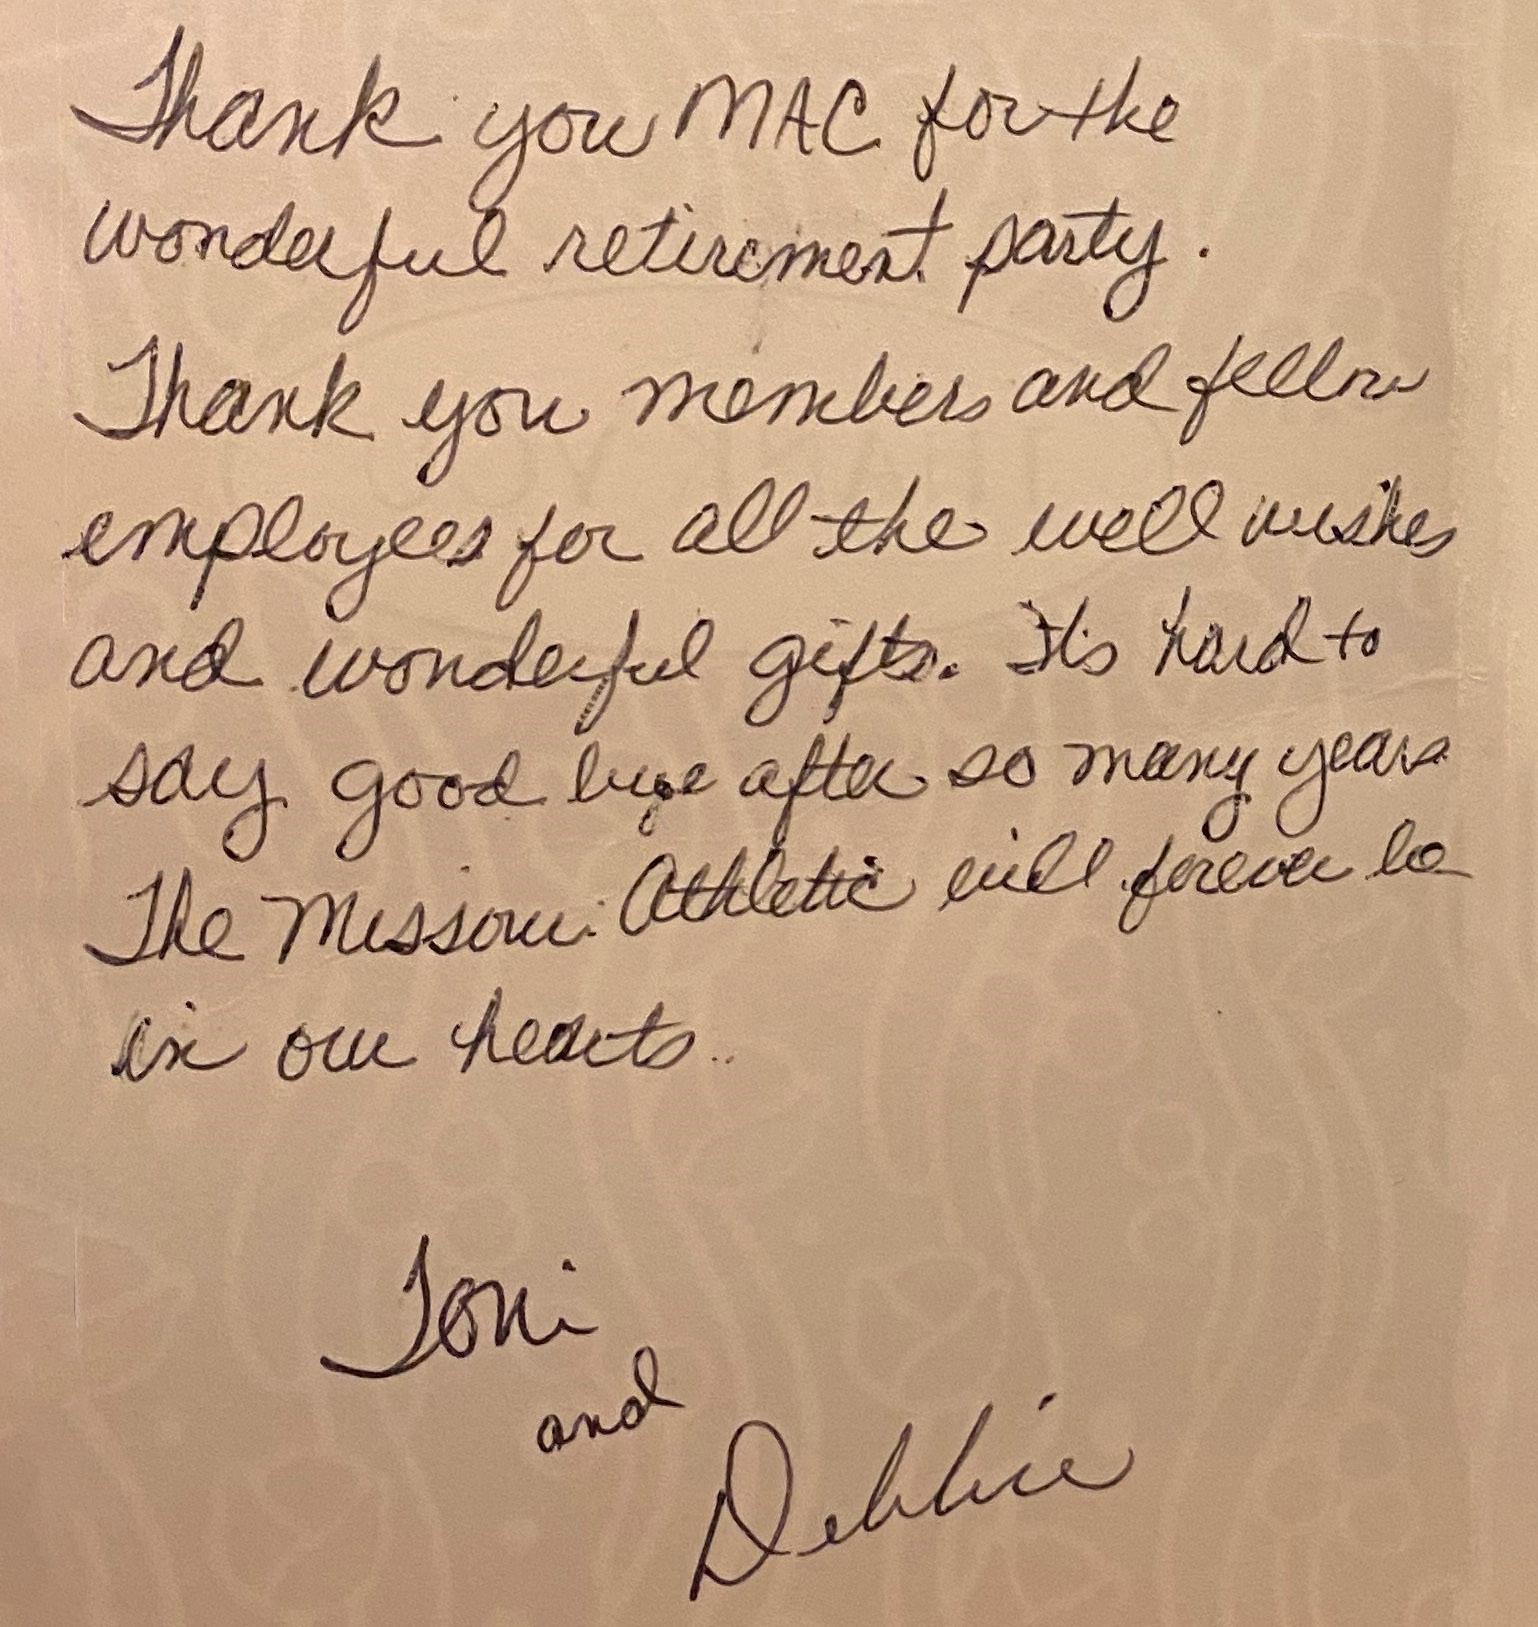 Thank you MAC for the
wonderful retirement party.
Thank you members and fellow
employees for all the well wishes
and wonderful gifts. It's hard to
say good bye after so many years
The Missouri Athletic will forever be
in our hearts..
Toni
and
Debbie